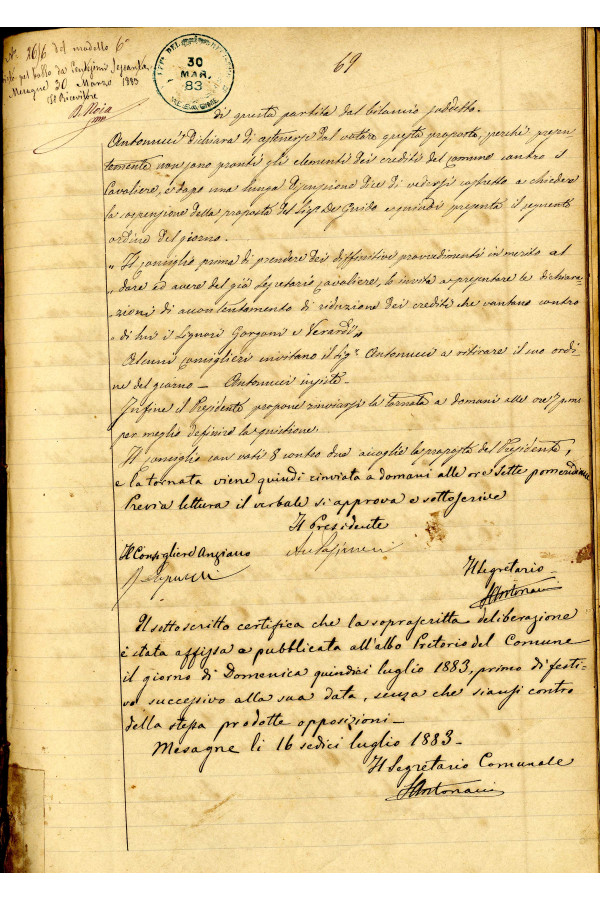 N. 2616 del modello 6°
visto pel bollo da Centesimi Sessanta
Mesagne 30 Marzo 1883
Il Ricevitore
30
MAR.
83
MESAGNE
69
di questa partita del bilancio suddetto.
Antonucci dichiara di astenersi dal votare questa proposta, perchè presen-
temente non sono pronti gli elementi dei crediti del Comune contro il
Cavaliere, e dopo una lunga discussione dice di vedersi costretto a chiedere
la sospensione della proposta del Sig.r De Guido e quindi presenta il seguente
ordine del giorno.
„ Il Consiglio prima di prendere dei diffinitivi provvedimenti in merito al
„ dare ed avere del già Segretario Cavaliere, lo invita a presentare le dichiara-
„ zioni di accontentamento di riduzione dei crediti che vantano contro
„ di lui i Signori Gorgoni e Verardi „
Alcuni Consiglieri invitano il Sig.r Antonucci a ritirare il suo ordi-
ne del giorno — Antonucci insiste.
Infine il Presidente propone rinviarsi la tornata a domani alle ore 7 p.m.
per meglio definire la quistione.
Il Consiglio con voti 8 contro due accoglie la proposta del Presidente,
e la tornata viene quindi rinviata a domani alle ore sette pomeridiane
Previa lettura il verbale si approva e sottoscrive
Il Presidente
Il Consigliere Anziano
Il Segretario
Il sottoscritto certifica che la soprascritta deliberazione
è stata affissa e pubblicata all'albo Pretorio del Comune
il giorno di Domenica quindici luglio 1883, primo dì festi-
vo successivo alla sua data, senza che siansi contro
della stessa prodotte opposizioni —
Mesagne li 16 sedici luglio 1883 —
Il Segretario Comunale